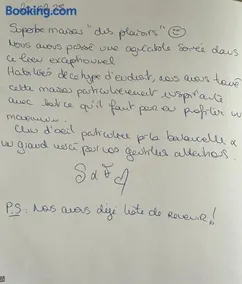 Booking.com
Superbe maison "des plaisirs" ☺
Nous avons passé une agréable soirée dans
ce lieu exceptionnel
Habitués de ce type d'endroit, nous avons trouvé
cette maison particulièrement inspirante
avec tout ce qu'il faut pour en profiter un
maximum.
Clin d'oeil particulier pr la balancelle &
un grand merci pour vos gentilles attentions.
S & F
P.S: Nous avons déjà hâte de revenir!